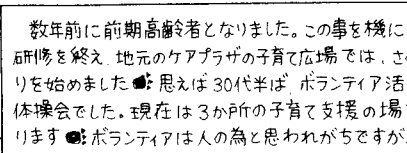 数年前に前期高齢者となりました。この事を機に
研修を終え、地元のケアプラザの子育て広場では、さ
りを始めました 思えば30代半ば、ボランティア活
体操会でした。現在は3か所の子育て支援の場
ります ボランティアは人の為と思われがちですが